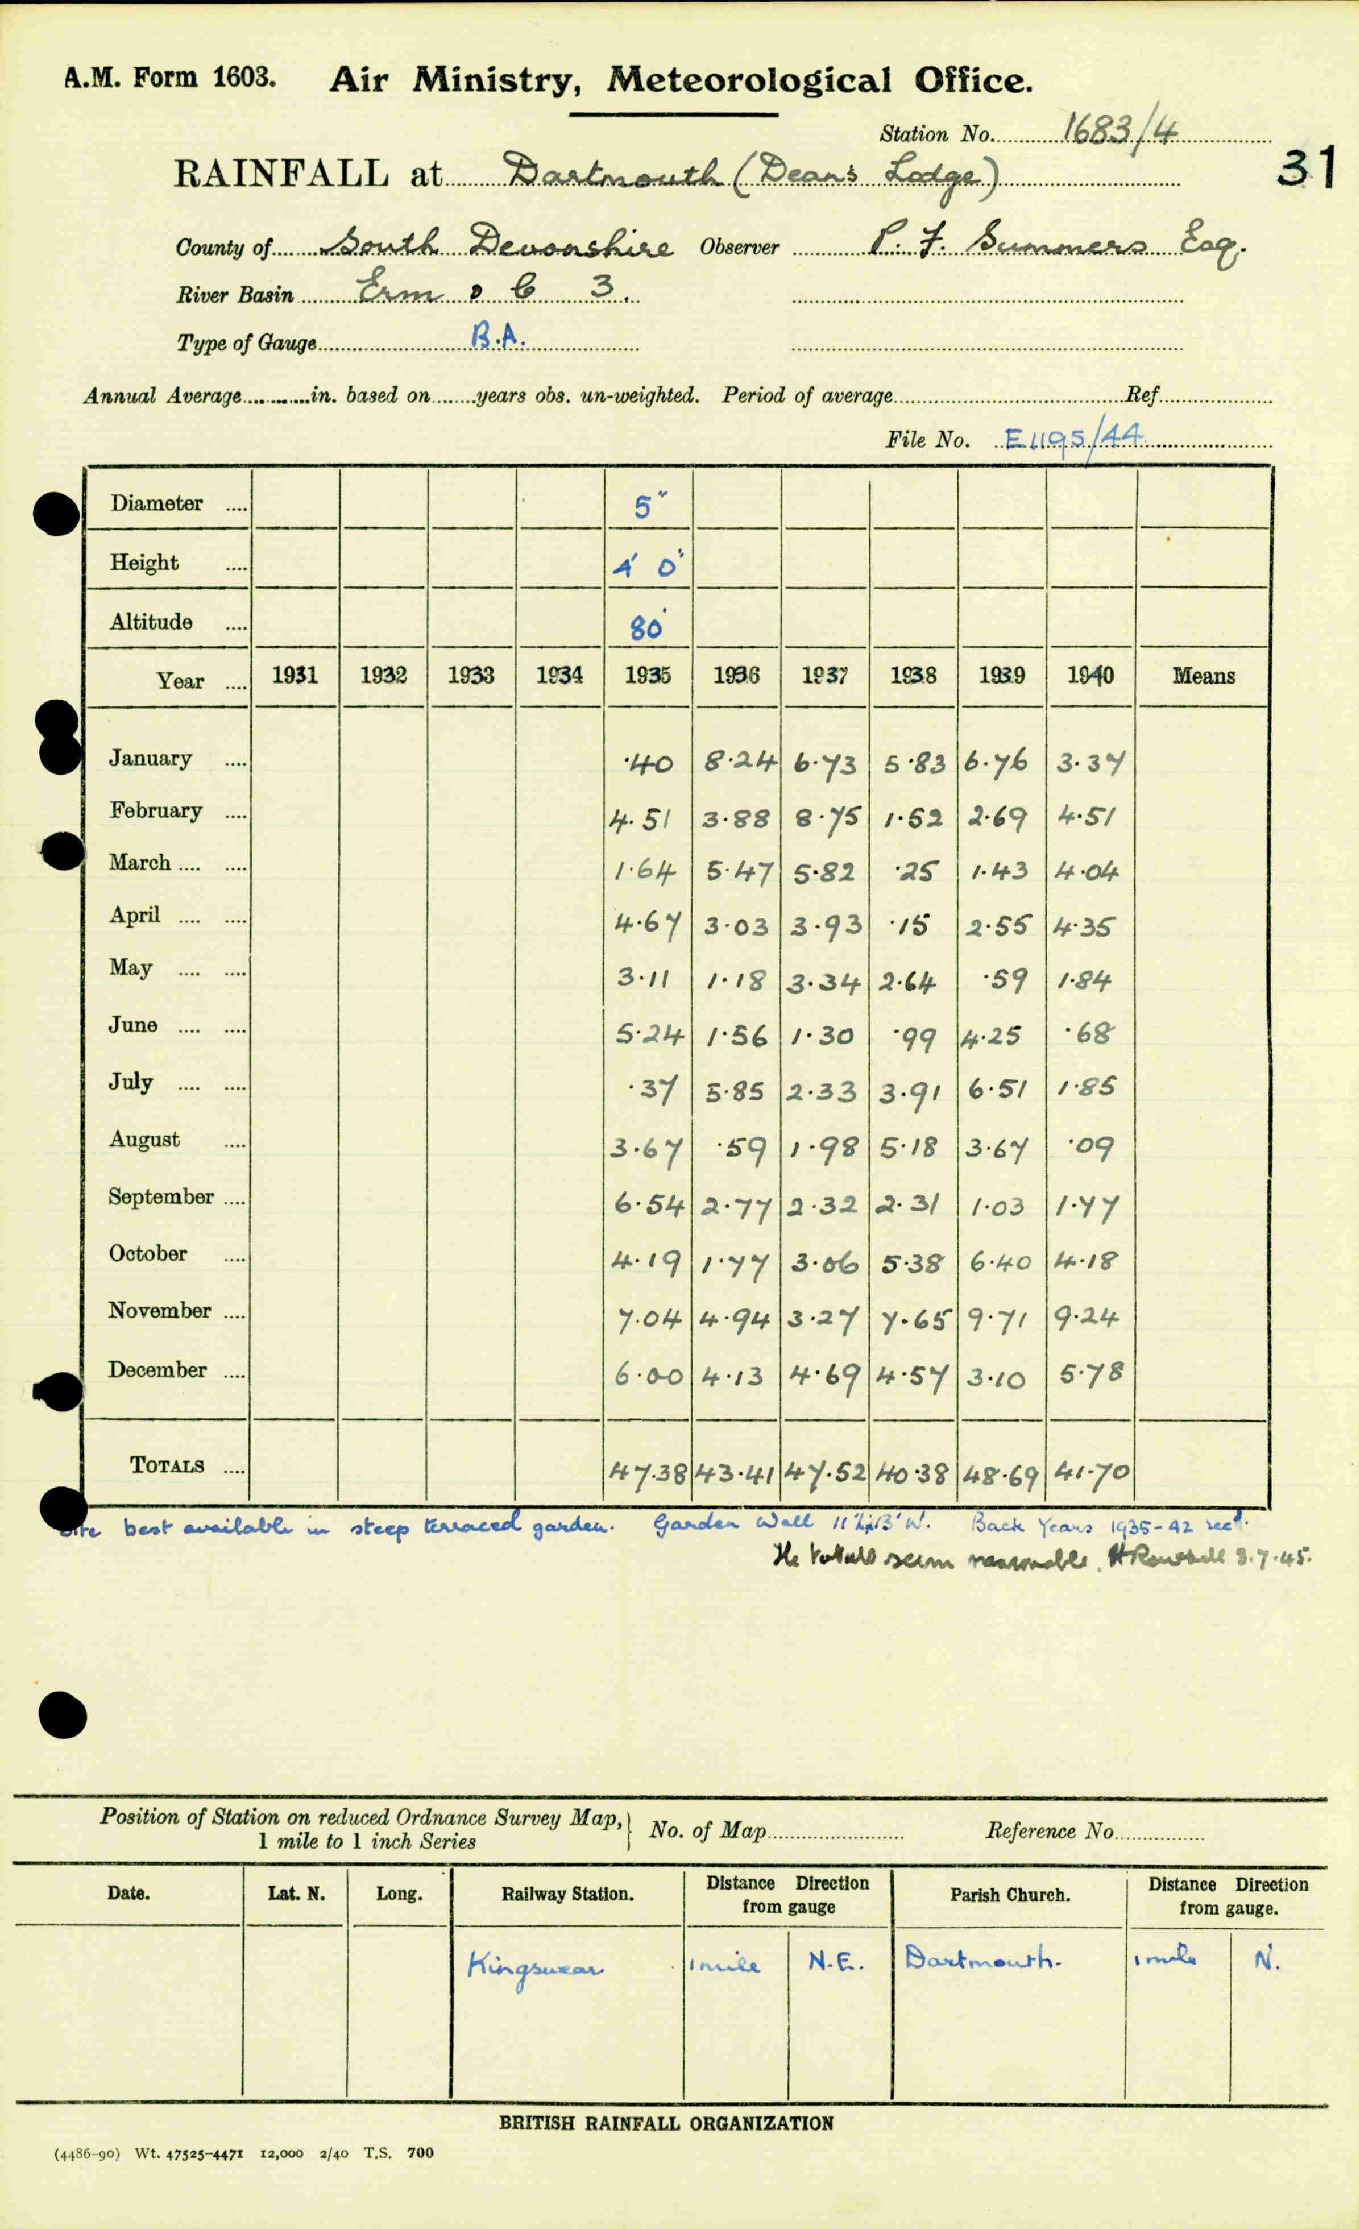 A.M. Form 1603. Air Ministry, Meteorological Office.
Station No. 1683/4
31
RAINFALL at Dartmouth (Deans Lodge)
County of South Devonshire Observer P. F. Summers Esq.
River Basin Erm 3.
Type of Gauge B.A.
Annual Average in. based on years obs. un-weighted. Period of average Ref
File No. E1195/44
Diameter .... 5"
Height .... 4' 0"
Altitude .... 80'
Year .... 1931 1932 1933 1934 1935 1936 1937 1938 1939 1940 Means
January .... ·40 8·24 6·73 5·83 6·76 3·37
February .... 4·51 3·88 8·75 1·52 2·69 4·51
March .... .... 1·64 5·47 5·82 ·25 1·43 4·04
April .... .... 4·67 3·03 3·93 ·15 2·55 4·35
May .... .... 3·11 1·18 3·34 2·64 ·59 1·84
June .... .... 5·24 1·56 1·30 ·99 4·25 ·68
July .... .... ·37 5·85 2·33 3·91 6·51 1·85
August .... 3·67 ·59 1·98 5·18 3·67 ·09
September .... 6·54 2·77 2·32 2·31 1·03 1·77
October .... 4·19 1·77 3·06 5·38 6·40 4·18
November .... 7·04 4·94 3·27 7·65 9·71 9·24
December .... 6·00 4·13 4·69 4·57 3·10 5·78
TOTALS .... 47·38 43·41 47·52 40·38 48·69 41·70
Site best available in steep terraced garden. Garden Wall 11' W. Back Years 1935-42 recd.
The totals seem reasonable. 8.7.45.
Position of Station on reduced Ordnance Survey Map, } No. of Map Reference No.
1 mile to 1 inch Series
Date. Lat. N. Long. Railway Station. Distance Direction from gauge Parish Church. Distance Direction from gauge.
Kingswear 1 mile N.E. Dartmouth. 1 mile N.
BRITISH RAINFALL ORGANIZATION
(4486-90) Wt. 47525-4471 12,000 2/40 T.S. 700